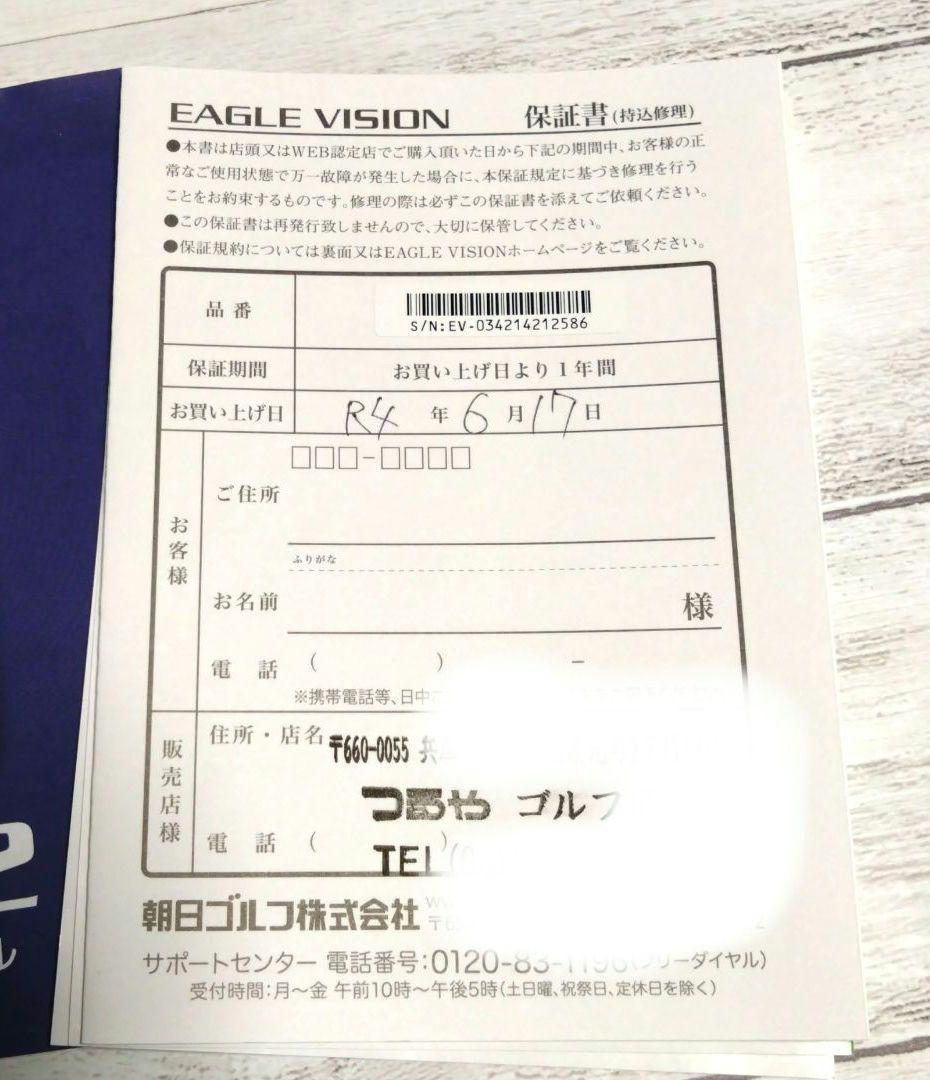 EAGLE VISION 保証書(持込修理)
●本書は店頭又はWEB認定店でご購入頂いた日から下記の期間中、お客様の正
常なご使用状態で万一故障が発生した場合に、本保証規定に基づき修理を行う
ことをお約束するものです。修理の際は必ずこの保証書を添えてご依頼ください。
●この保証書は再発行致しませんので、大切に保管してください。
●保証規約については裏面又はEAGLE VISIONホームページをご覧ください。
品番
S/N:EV-034214212586
保証期間 お買い上げ日より1年間
お買い上げ日 R4 年 6 月 17 日
お客様
ご住所
ふりがな
お名前 様
電話 ( ) －
※携帯電話等、日中
販売店様
住所・店名 〒660-0055
つるや ゴルフ
電話 ( )
TEL
朝日ゴルフ株式会社
サポートセンター 電話番号:0120-83-1196(フリーダイヤル)
受付時間:月〜金 午前10時〜午後5時(土日曜、祝祭日、定休日を除く)